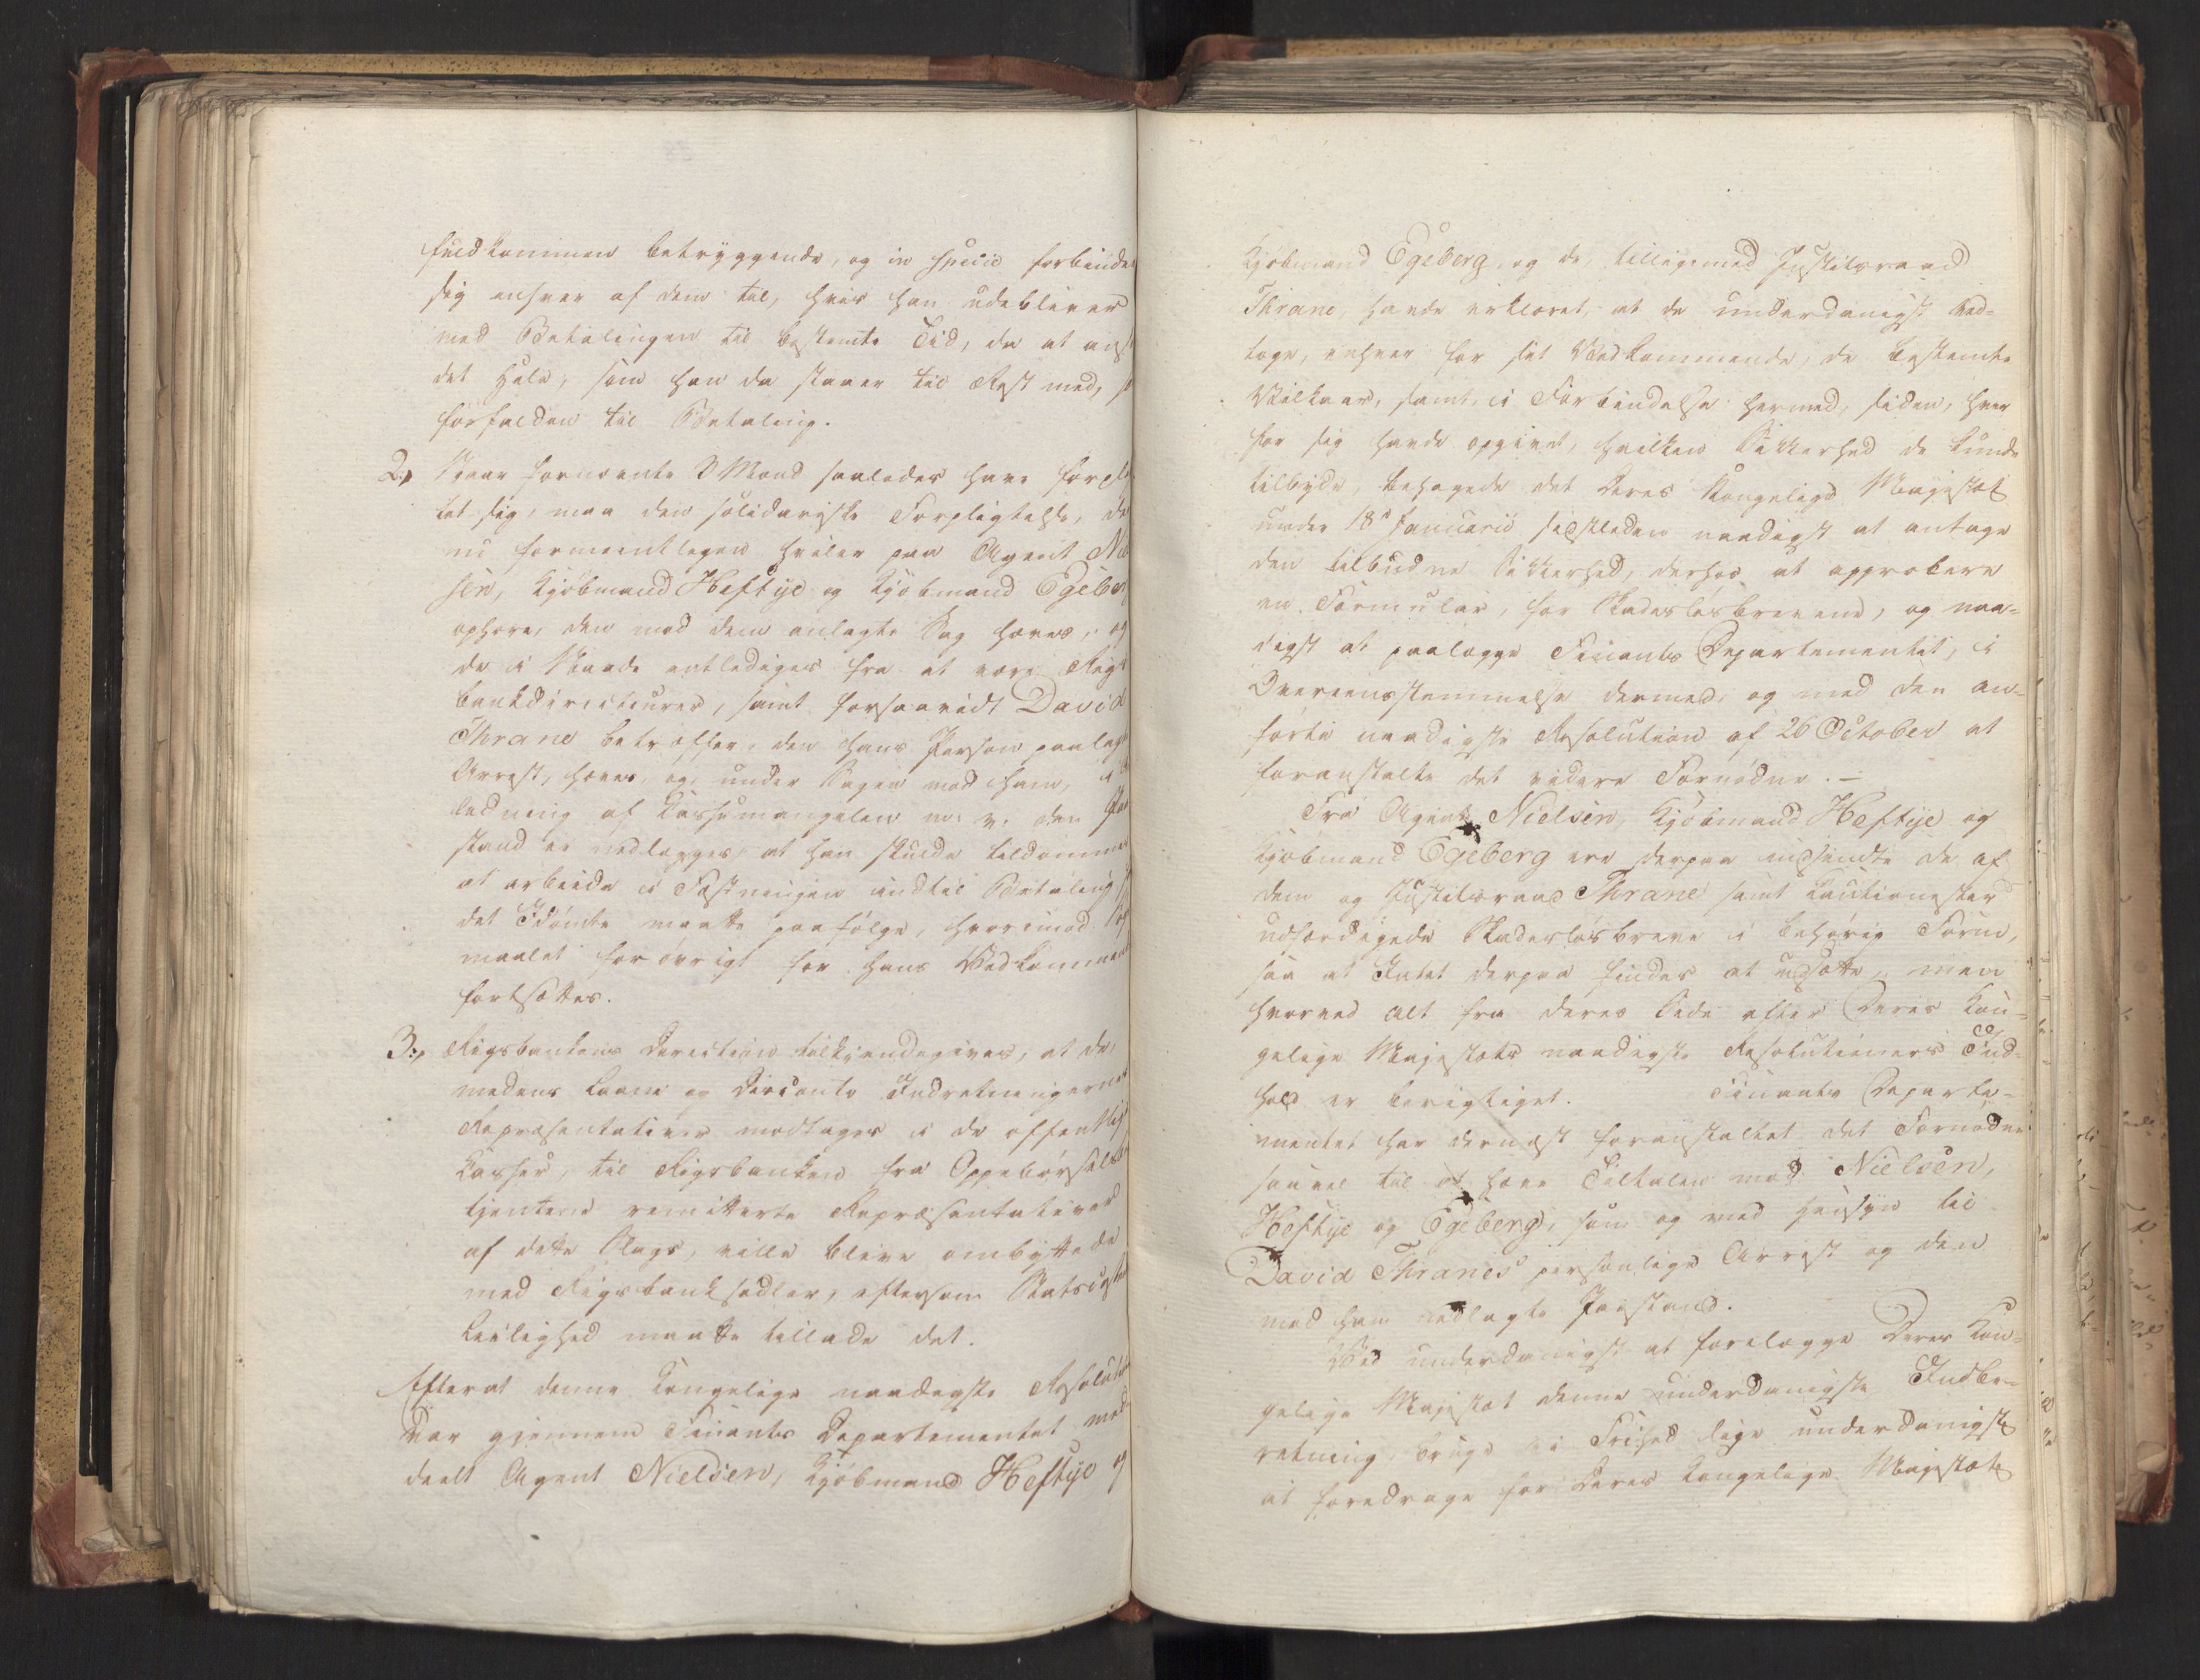 fuldkommen betryggende, og in specie forbinder
sig enhver af dem til, hvis han udebliver
med Betalingen til bestemte Tid, da at ans
det Hele, som han da staaer til Rest med, s
forfalden til Betaling.
2, Naar fornævnte 3 Mænd saaledes have forpl
tet sig, maa den solidariske Forpligtelse, de
nu formeentligen hviler paa Agent Niel
sen, Kjøbmand Heftye og Kjøbmand Egeber
ophøre, den mod dem anlagte Sag hæves, og
de i Naade entlediges fra at være Rigs
bankdirecteurer, samt forsaavidt David
Thrane betræffer, den hans Person paalagte
Arrest, hæves, og, under Sagen mod ham, i An
ledning af Kassemangelen m: v: den Paa
stand ei nedlægges, at han skulde tildømmes
at arbeide i Fæstningen indtil Betaling
det Idømte maatte paafølge, hvorimod Søg
maalet forøvrigt for hans Vedkommende
fortsættes.
3:, Rigsbankens Direction tilkjendegives, at de,
medens Laane og Disconto Indretningernes
Repræsentativer modtages i de offentlige
Kasser, til Rigsbanken fra Oppebørsels
tjenterne remitterte Repræsentativer
af dette Slags, ville blive ombyttede
med Rigsbanksedler, eftersom Statscassens
Leilighed maatte tillade det.
Efterat denne Kongelige naadigste Resolution
var gjennem Finants Departementet med
deelt Agent Nielsen, Kjøbmand Heftye og
Kjøbmand Egeberg, og de, tilligemed Justitsraad
Thrane, havde erklæret, at de underdanigst ved-
toge, enhver for sit Vedkommende, de bestemte
Vilkaar, samt, i Forbindelse hermed, siden, hver
for sig havde opgivet, hvilken Sikkerhed de kunde
tilbyde, behagede det Deres Kongelige Majestæt
under 18de Januarii sidstleden naadigst at antage
den tilbudne Sikkerhed, derhos at approbere
en Formular, for Skadesløsbrevene, og naa-
digst at paalægge Finants Departementet, i
Overeensstemmelse dermed, og med den an-
førte naadigste Resolution af 26 October at
foranstalte det videre Fornødne. —
Fra Agent Nielsen, Kjøbmand Heftye og
Kjøbmand Egeberg ere derpaa indsendte de af
dem og Justitsraad Thrane samt Cautionister
udfærdigede Skadesløsbreve i behørig Form,
saa at Intet derpaa findes at udsætte, men
hvorved Alt fra deres Side efter Deres Kon-
gelige Majestæts naadigste Resolutioners Ind-
hold er berigtiget. Finants Departe-
mentet har dernæst foranstaltet det Fornødne
saavel til at hæve Tiltalen mod Nielsen,
Heftye og Egeberg, som og med Hensyn til
David Thranes personlige Arrest og den
mod ham nedlagte Paastand.
Ved underdanigst at forelægge Deres Kon-
gelige Majestæt denne underdanigste Indbe-
retning, bruge vi Frihed lige underdanigst
at foredrage for Deres Kongelige Majestæt